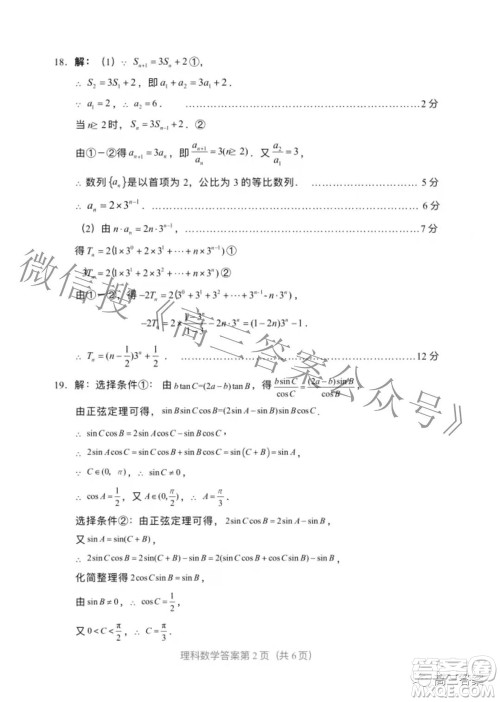 18. 解：（1）∵ Sₙ₊₁=3Sₙ+2 ①，
∴ S₂=3S₁+2，即 a₁+a₂=3a₁+2.
∵ a₁=2，∴ a₂=6. ………………………………………2 分
当 n≥2时，Sₙ=3Sₙ₋₁+2. ②
由①－②得 aₙ₊₁=3aₙ，即 aₙ₊₁/aₙ=3(n≥2). 又 a₂/a₁=3，
∴ 数列{aₙ}是以首项为 2，公比为 3 的等比数列. ……………………5 分
∴ aₙ=2×3ⁿ⁻¹. ………………………………………6 分
（2）由 n·aₙ=2n·3ⁿ⁻¹， ………………………………7 分
得 Tₙ=2(1×3⁰+2×3¹+…+n×3ⁿ⁻¹) ①
3Tₙ=2(1×3¹+2×3²+…+n×3ⁿ) ②
由①－②，得 −2Tₙ=2(3⁰+3¹+3²+…+3ⁿ⁻¹−n·3ⁿ)，
−2Tₙ=2×(1−3ⁿ)/(1−3)−2n·3ⁿ=(1−2n)3ⁿ−1.
∴ Tₙ=(n−1/2)3ⁿ+1/2. ………………………………12 分
19. 解：选择条件①：由 b tanC=(2a−b)tanB，得 b sinC/cosC=(2a−b)sinB/cosB，
由正弦定理可得，sinBsinCcosB=(2sinA−sinB)sinBcosC.
∴ sinCcosB=2sinAcosC−sinBcosC，
∴ 2sinAcosC=sinCcosB+cosCsinB=sin(C+B)=sinA，
∵ C∈(0，π)，∴ sinC≠0，
∴ cosA=1/2，又 A∈(0,π/2)，∴ A=π/3.
选择条件②：由正弦定理可得，2sinCcosB=2sinA−sinB，
又 sinA=sin(C+B)，
∴ 2sinCcosB=2sin(C+B)−sinB，
化简整理得 2cosCsinB=sinB，
由 sinB≠0，∴ cosC=1/2，
又 0<C<π/2，∴ C=π/3.
理科数学答案第 2 页（共 6 页）
微信搜《高三答案公众号》
高三答案